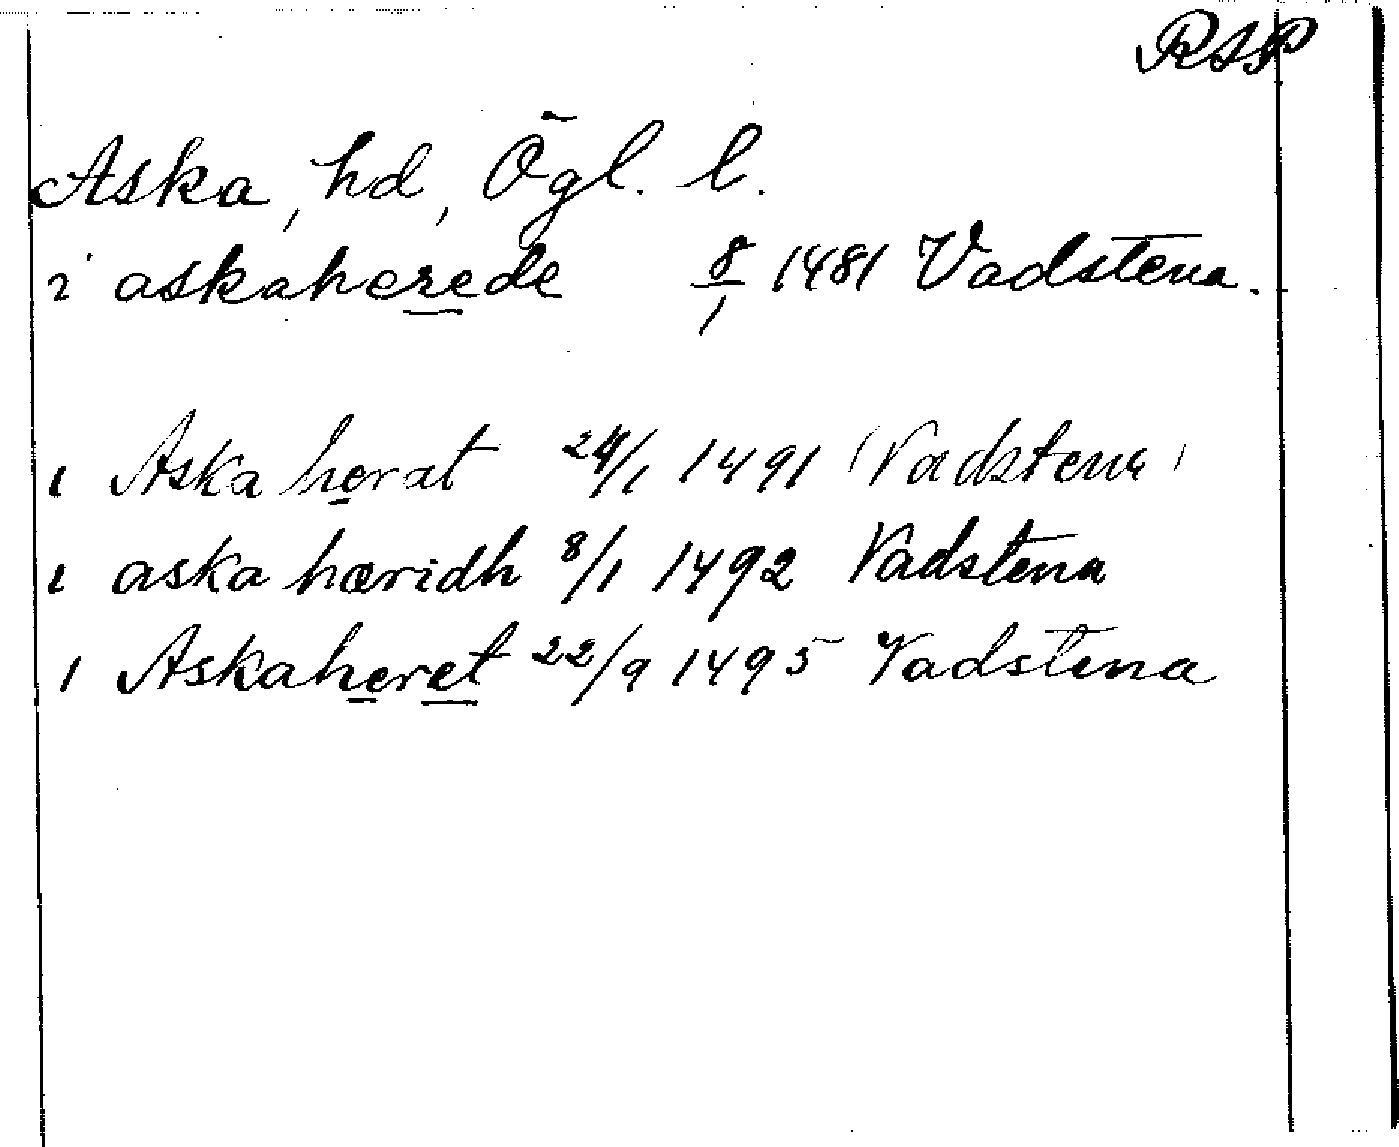 RAP
Aska, hd, Ögl. l.
i askaherede 8/1 1481 Vadstena.
i Aska herat 24/1 1491 (Vadstena)
i aska hæridh 8/1 1492 Vadstena
i Askaheret 22/9 1495 Vadstena